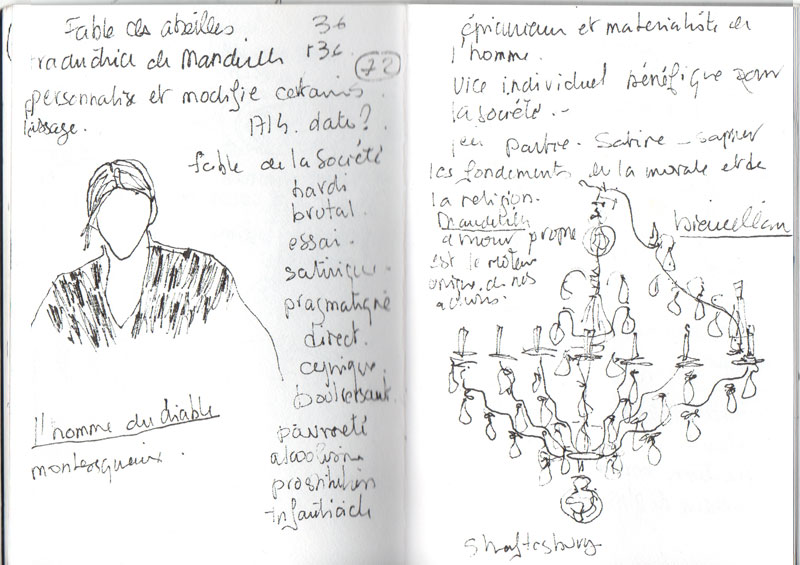 Fable des abeilles. 36
traductrice de Mandeville 136
72
personnalise et modifie certains
passage. 1714. date?
fable de la Société
hardi
brutal.
essai.
satirique.
pragmatique
direct.
cynique.
bouleversant.
pauvreté
alcoolisme
prostitution
infanticide
l'homme du diable
montesquieu.
épicurien et matérialiste de
l'homme.
Vice individuel bénéfique pour
la société.-
partie. Satire - saper
les fondements de la morale et de
la religion.
Mandeville
amour propre
est le moteur
unique de nos
actions.
Shaftesbury